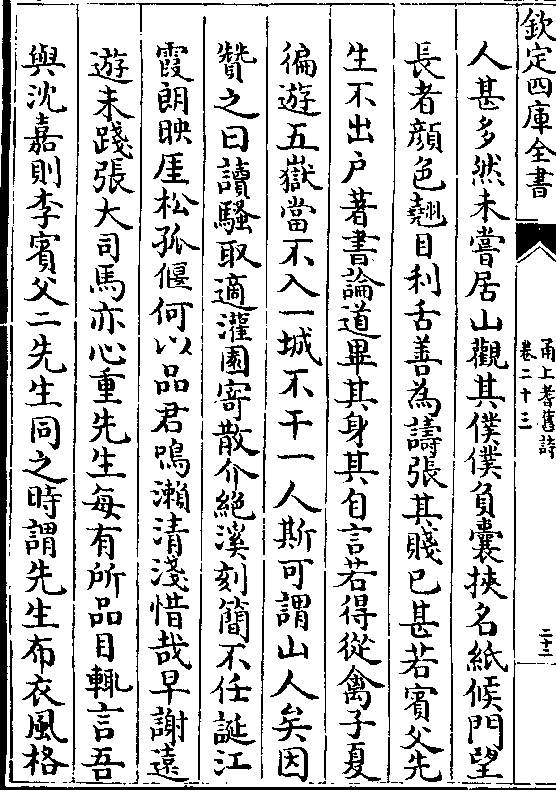 欽定四庫全書
甬上耆舊詩
卷二十三
二十二
人甚多然未嘗居山觀其僕僕負囊挾名紙候門望
長者顔色翹目利舌善為譸張其賤已甚若賓父先
生不出户著書論道畢其身其自言若得從禽子夏
徧遊五嶽當不入一城不干一人斯可謂山人矣因
贊之曰讀騷取適灌園寄散介絶溪刻簡不任誕江
霞朗映厓松孤偃何以品君鳴瀨清淺惜哉早謝遠
遊未踐張大司馬亦心重先生每有所品目輒言吾
與沈嘉則李賓父二先生同之時謂先生布衣風格